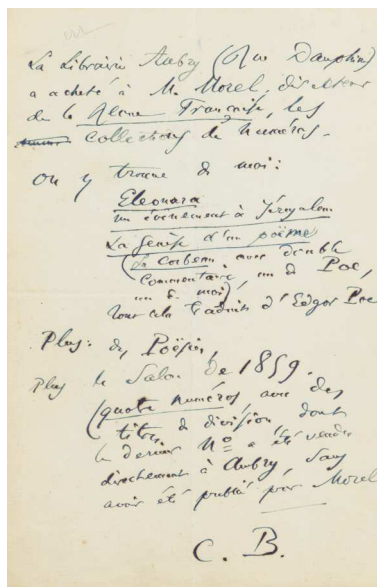 La Librairie Aubry (Rue Dauphine)
a acheté à M. Morel, directeur
de la Revue Française, les
collections de numéros.
On y trouve de moi :
Eleonora
un événement à Jérusalem
La genèse d'un poëme
(Le Corbeau, avec double
commentaire, un de Poe,
un de moi),
tout cela traduit d'Edgar Poe
Plus : des Poësies,
Plus le Salon de 1859.
(quatre numéros avec des
titres de division, dont
le dernier No a été vendu
directement à Aubry, sans
avoir été publié par Morel
C. B.